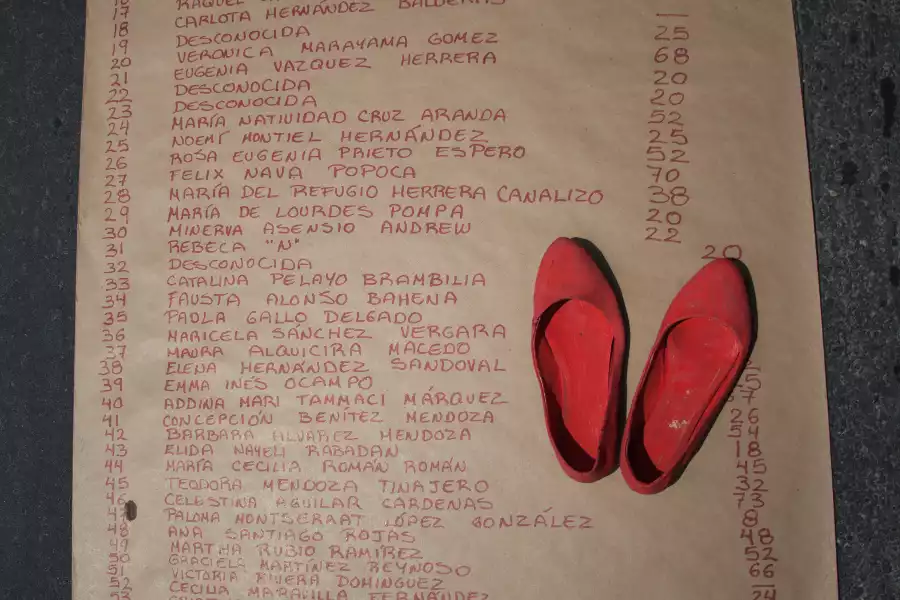 17 RAQUEL
18 CARLOTA HERNÁNDEZ BALDERAS
19 DESCONOCIDA —
20 VERONICA MARAYAMA GOMEZ 25
21 EUGENIA VAZQUEZ HERRERA 68
22 DESCONOCIDA 20
23 DESCONOCIDA 20
24 MARÍA NATIVIDAD CRUZ ARANDA 52
25 NOEMÍ MONTIEL HERNÁNDEZ 25
26 ROSA EUGENIA PRIETO ESPERO 52
27 FELIX NAVA POPOCA 70
28 MARÍA DEL REFUGIO HERRERA CANALIZO 38
29 MARÍA DE LOURDES POMPA 20
30 MINERVA ASENSIO ANDREW 22
31 REBECA "N" 20
32 DESCONOCIDA
33 CATALINA PELAYO BRAMBILIA
34 FAUSTA ALONSO BAHENA
35 PAOLA GALLO DELGADO
36 MARICELA SÁNCHEZ VERGARA
37 MAURA ALQUICIRA MACEDO
38 ELENA HERNÁNDEZ SANDOVAL
39 EMMA INÉS OCAMPO 5
40 ADDINA MARI TAMMACI MÁRQUEZ 7
41 CONCEPCIÓN BENÍTEZ MENDOZA 26
42 BARBARA ALVAREZ MENDOZA 54
43 ELIDA NAYELI RABADÁN 18
44 MARÍA CECILIA ROMÁN ROMÁN 45
45 TEODORA MENDOZA TINAJERO 32
46 CELESTINA AGUILAR CARDENAS 73
47 PALOMA MONTSERRAT LÓPEZ GONZÁLEZ 8
48 ANA SANTIAGO ROJAS 48
49 MARTHA RUBIO RAMÍREZ 52
50 GRACIELA MARTÍNEZ REYNOSO 66
51 VICTORIA RIVERA DOMINGUEZ —
52 CECILIA MARAVILLA FERNÁNDEZ 24
53